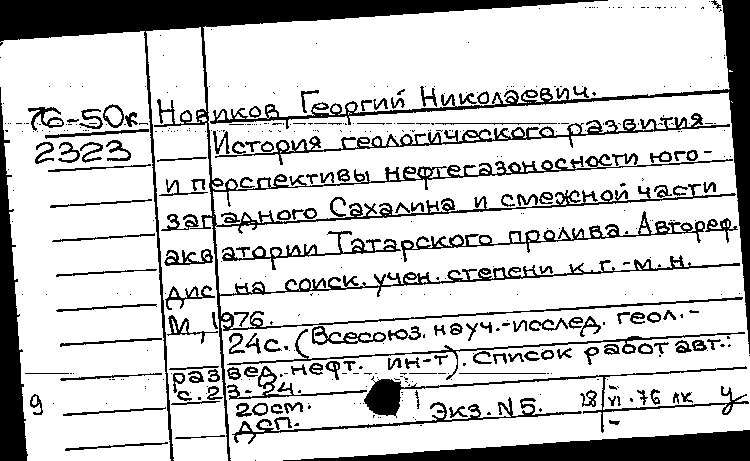 76-50к Новиков, Георгий Николаевич.
2323 История геологического развития
и перспективы нефтегазоносности юго-
западного Сахалина и смежной части
акватории Татарского пролива. Автореф.
дис на соиск. учен. степени к.г.-м.н.
М., 1976.
24с. (Всесоюз. науч.-исслед. геол.-
развед. нефт. ин-т). Список работ авт.:
с. 23-24.
9 20см. Экз. N5. 76 лк
ДСП.